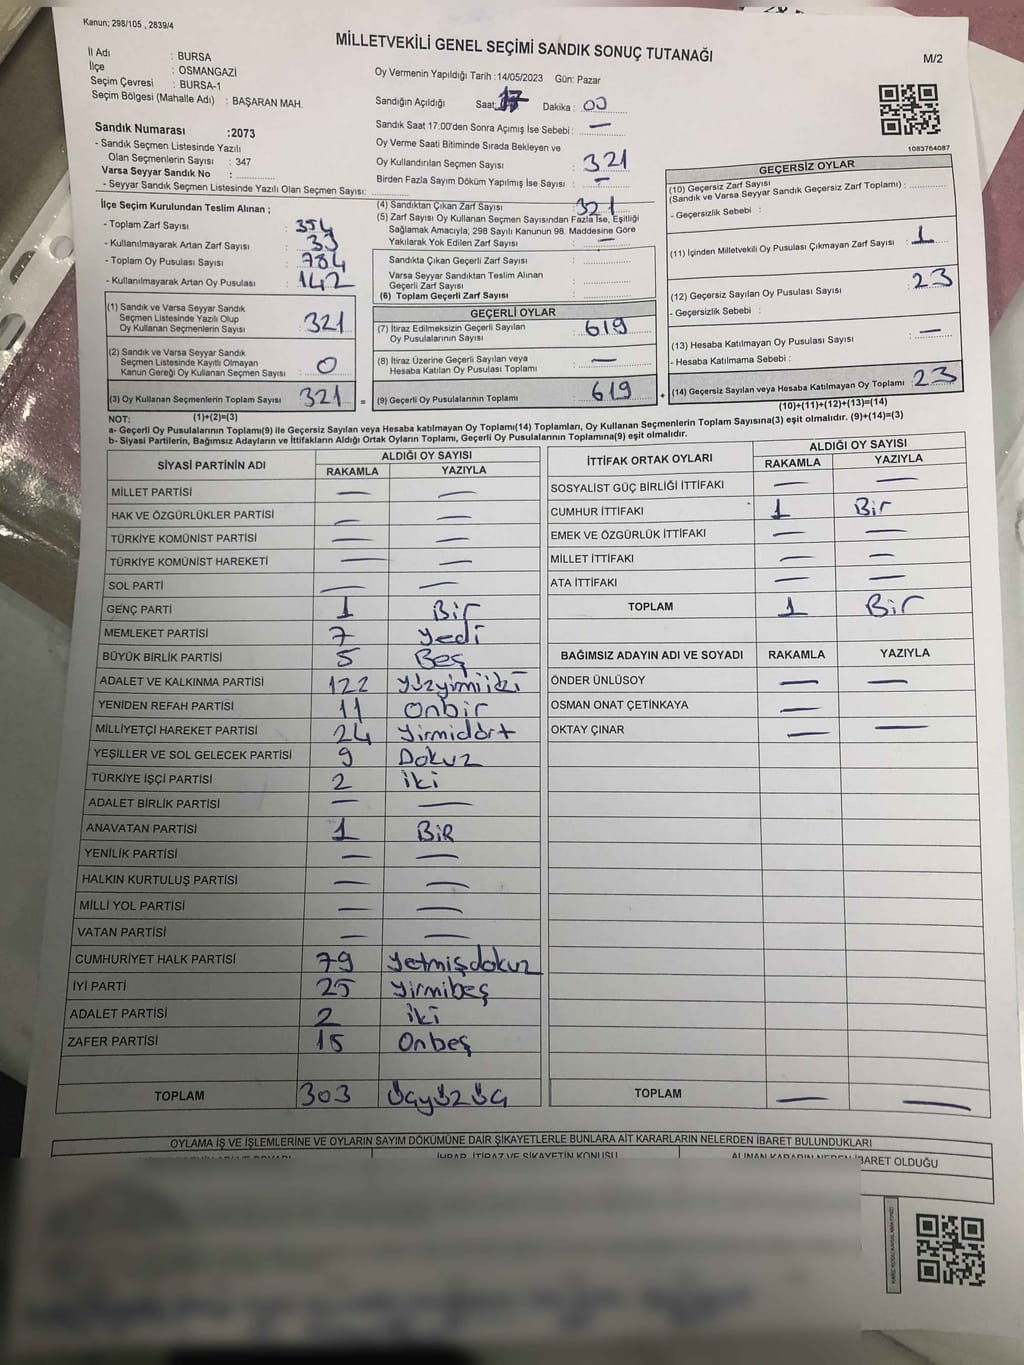 Kanun; 298/105 , 2839/4
MİLLETVEKİLİ GENEL SEÇİMİ SANDIK SONUÇ TUTANAĞI
M/2
İl Adı : BURSA
İlçe : OSMANGAZİ
Seçim Çevresi : BURSA-1
Seçim Bölgesi (Mahalle Adı) : BAŞARAN MAH.
Oy Vermenin Yapıldığı Tarih :14/05/2023 Gün: Pazar
Sandığın Açıldığı Saat: 17 Dakika : 00
Sandık Saat 17:00'den Sonra Açımış İse Sebebi : —
Oy Verme Saati Bitiminde Sırada Bekleyen ve
Oy Kullandırılan Seçmen Sayısı : 321
Birden Fazla Sayım Döküm Yapılmış İse Sayısı : —
1083764087
Sandık Numarası :2073
- Sandık Seçmen Listesinde Yazılı
Olan Seçmenlerin Sayısı : 347
Varsa Seyyar Sandık No :
- Seyyar Sandık Seçmen Listesinde Yazılı Olan Seçmen Sayısı:
İlçe Seçim Kurulundan Teslim Alınan ;
- Toplam Zarf Sayısı : 354
- Kullanılmayarak Artan Zarf Sayısı : 33
- Toplam Oy Pusulası Sayısı : 784
- Kullanılmayarak Artan Oy Pusulası : 142
(1) Sandık ve Varsa Seyyar Sandık
Seçmen Listesinde Yazılı Olup
Oy Kullanan Seçmenlerin Sayısı : 321
(2) Sandık ve Varsa Seyyar Sandık
Seçmen Listesinde Kayıtlı Olmayan
Kanun Gereği Oy Kullanan Seçmen Sayısı : 0
(3) Oy Kullanan Seçmenlerin Toplam Sayısı : 321
(1)+(2)=(3)
(4) Sandıktan Çıkan Zarf Sayısı : 321
(5) Zarf Sayısı Oy Kullanan Seçmen Sayısından Fazla İse, Eşitliği
Sağlamak Amacıyla; 298 Sayılı Kanunun 98. Maddesine Göre
Yakılarak Yok Edilen Zarf Sayısı : —
Sandıkta Çıkan Geçerli Zarf Sayısı :
Varsa Seyyar Sandıktan Teslim Alınan
Geçerli Zarf Sayısı :
(6) Toplam Geçerli Zarf Sayısı :
GEÇERLİ OYLAR
(7) İtiraz Edilmeksizin Geçerli Sayılan
Oy Pusulalarının Sayısı : 619
(8) İtiraz Üzerine Geçerli Sayılan veya
Hesaba Katılan Oy Pusulası Toplamı : —
= (9) Geçerli Oy Pusulalarının Toplamı : 619
GEÇERSİZ OYLAR
(10) Geçersiz Zarf Sayısı
(Sandık ve Varsa Seyyar Sandık Geçersiz Zarf Toplamı) :
- Geçersizlik Sebebi :
(11) İçinden Milletvekili Oy Pusulası Çıkmayan Zarf Sayısı : 1
(12) Geçersiz Sayılan Oy Pusulası Sayısı : 23
- Geçersizlik Sebebi :
(13) Hesaba Katılmayan Oy Pusulası Sayısı : —
- Hesaba Katılmama Sebebi :
+ (14) Geçersiz Sayılan veya Hesaba Katılmayan Oy Toplamı : 23
(10)+(11)+(12)+(13)=(14)
NOT:
a- Geçerli Oy Pusulalarının Toplamı(9) ile Geçersiz Sayılan veya Hesaba katılmayan Oy Toplamı(14) Toplamları, Oy Kullanan Seçmenlerin Toplam Sayısına(3) eşit olmalıdır. (9)+(14)=(3)
b- Siyasi Partilerin, Bağımsız Adayların ve İttifakların Aldığı Ortak Oyların Toplamı, Geçerli Oy Pusulalarının Toplamına(9) eşit olmalıdır.
SİYASİ PARTİNİN ADI ALDIĞI OY SAYISI
RAKAMLA YAZIYLA
MİLLET PARTİSİ — —
HAK VE ÖZGÜRLÜKLER PARTİSİ — —
TÜRKİYE KOMÜNİST PARTİSİ — —
TÜRKİYE KOMÜNİST HAREKETİ — —
SOL PARTİ — —
GENÇ PARTİ 1 Bir
MEMLEKET PARTİSİ 7 Yedi
BÜYÜK BİRLİK PARTİSİ 5 Beş
ADALET VE KALKINMA PARTİSİ 122 Yüzyimiiki
YENİDEN REFAH PARTİSİ 11 Onbir
MİLLİYETÇİ HAREKET PARTİSİ 24 Yirmidört
YEŞİLLER VE SOL GELECEK PARTİSİ 9 Dokuz
TÜRKİYE İŞÇİ PARTİSİ 2 iki
ADALET BİRLİK PARTİSİ — —
ANAVATAN PARTİSİ 1 BİR
YENİLİK PARTİSİ — —
HALKIN KURTULUŞ PARTİSİ — —
MİLLİ YOL PARTİSİ — —
VATAN PARTİSİ — —
CUMHURİYET HALK PARTİSİ 79 Yetmişdokuz
İYİ PARTİ 25 Yirmibeş
ADALET PARTİSİ 2 iki
ZAFER PARTİSİ 15 Onbeş
TOPLAM 303 Üçyüzüç
İTTİFAK ORTAK OYLARI ALDIĞI OY SAYISI
RAKAMLA YAZIYLA
SOSYALİST GÜÇ BİRLİĞİ İTTİFAKI — —
CUMHUR İTTİFAKI 1 Bir
EMEK VE ÖZGÜRLÜK İTTİFAKI — —
MİLLET İTTİFAKI — —
ATA İTTİFAKI — —
TOPLAM 1 Bir
BAĞIMSIZ ADAYIN ADI VE SOYADI RAKAMLA YAZIYLA
ÖNDER ÜNLÜSOY — —
OSMAN ONAT ÇETİNKAYA —
OKTAY ÇINAR — —
TOPLAM — —
OYLAMA İŞ VE İŞLEMLERİNE VE OYLARIN SAYIM DÖKÜMÜNE DAİR ŞİKAYETLERLE BUNLARA AİT KARARLARIN NELERDEN İBARET BULUNDUKLARI
İHBAR, İTİRAZ VE ŞİKAYETİN KONUSU
ALINAN KARARIN NEDEN İBARET OLDUĞU